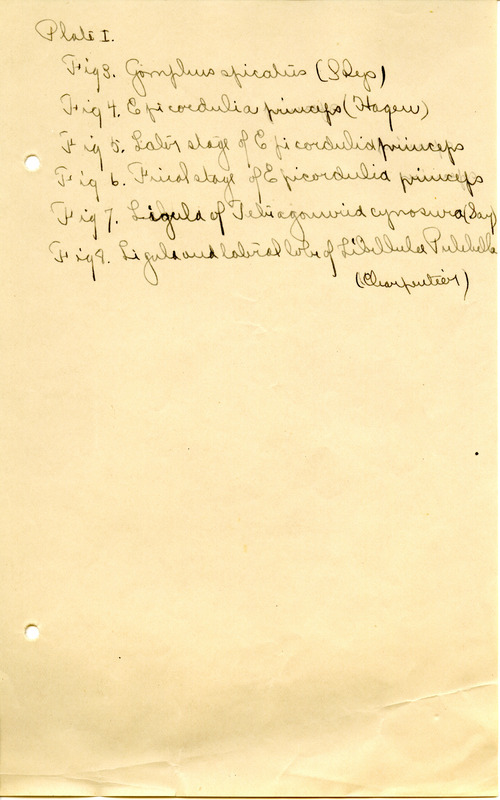 Plate I.
Fig 3. Gomphus spicatus (Selys)
Fig 4. Epicordulia princeps (Hagen)
Fig 5. Later stage of Epicordulia princeps
Fig 6. Final stage of Epicordulia princeps
Fig 7. Ligula of Tetragoneuria cynosura (Say)
Fig 8. Ligula and labial lobe of Libellula Pulchella
(Charpentier)